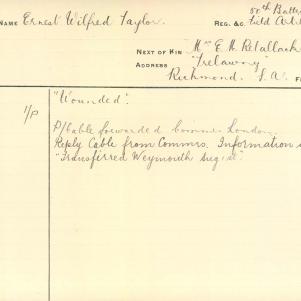 50th Batta
NAME Ernest Wilfred Taylor. REG. &C. Field Arti
NEXT OF KIN Mrs E. M. Retallack
ADDRESS "Trelawny"
Richmond. S.A.
"Wounded".
1/P P/Cable forwarded Commr London.
Reply Cable from Commrs. Information
"Transferred Weymouth